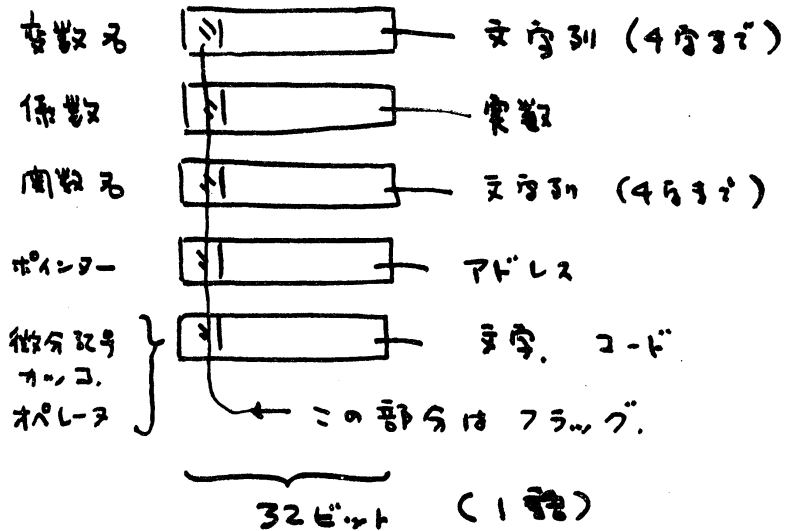 変数名 文字列 (4字まで)
係数 実数
関数名 文字列 (4字まで)
ポインター アドレス
微分記号 文字. コード
カッコ.
オペレータ この部分は フラッグ.
32ビット (1語)